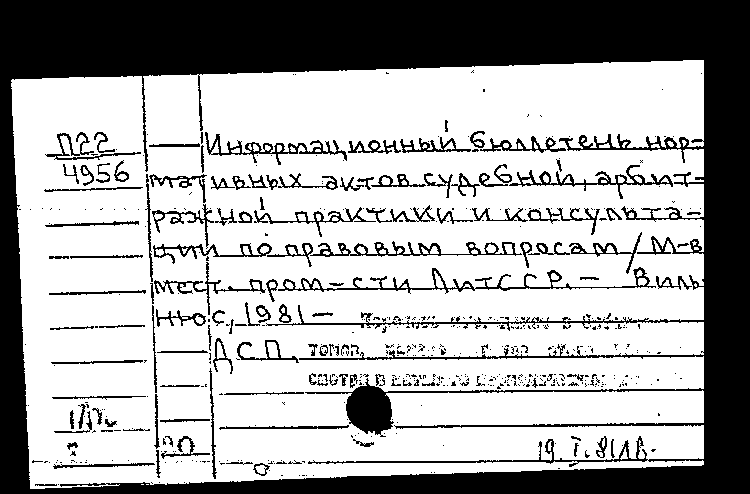 П22
4956
Информационный бюллетень нор=
мативных актов судебной, арбит=
ражной практики и консульта=
ции по правовым вопросам / М-в
мест. пром-сти ЛитССР. – Виль
нюс, 1981 –
ДСП.
томов,
смотри в
20
19.I.81